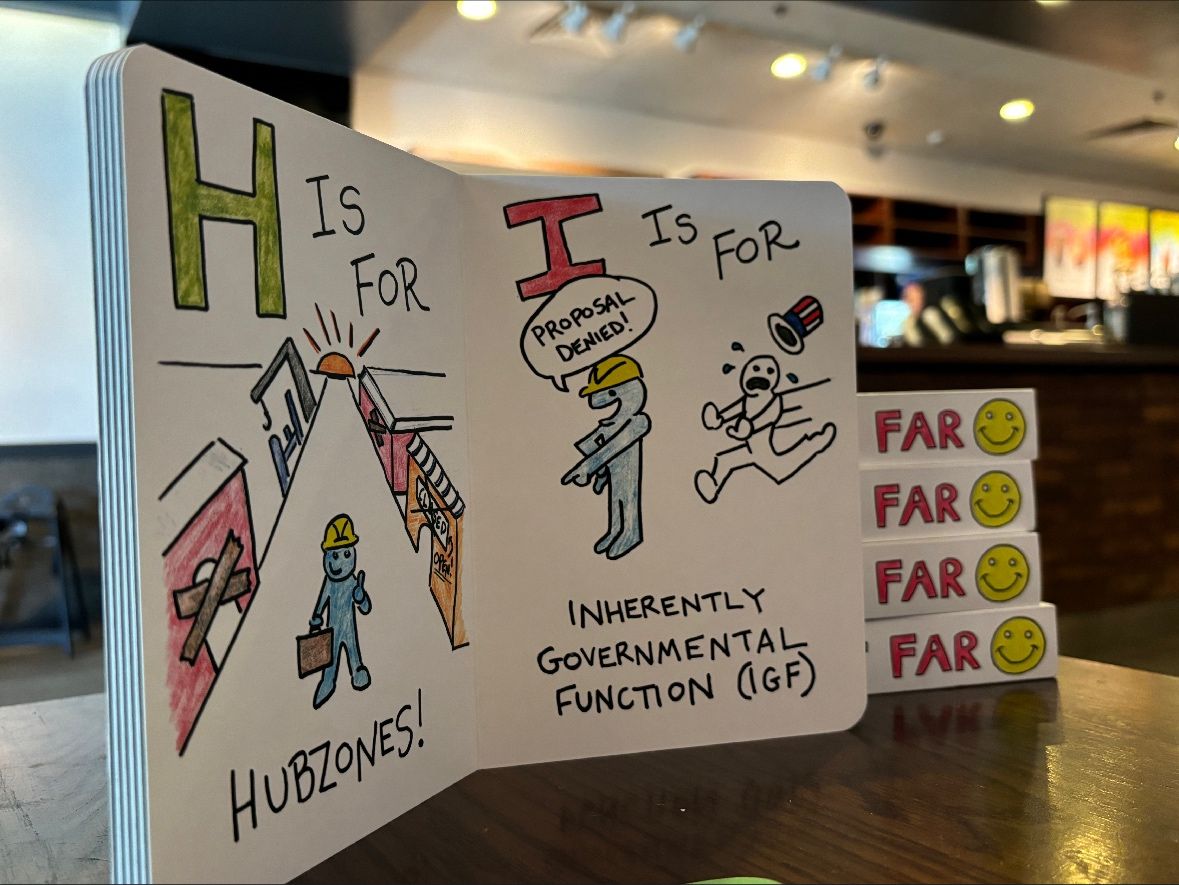 H IS
FOR
CLOSED
OPEN!
HUBZONES!
I IS
FOR
PROPOSAL
DENIED!
INHERENTLY
GOVERNMENTAL
FUNCTION (IGF)
FAR
FAR
FAR
FAR